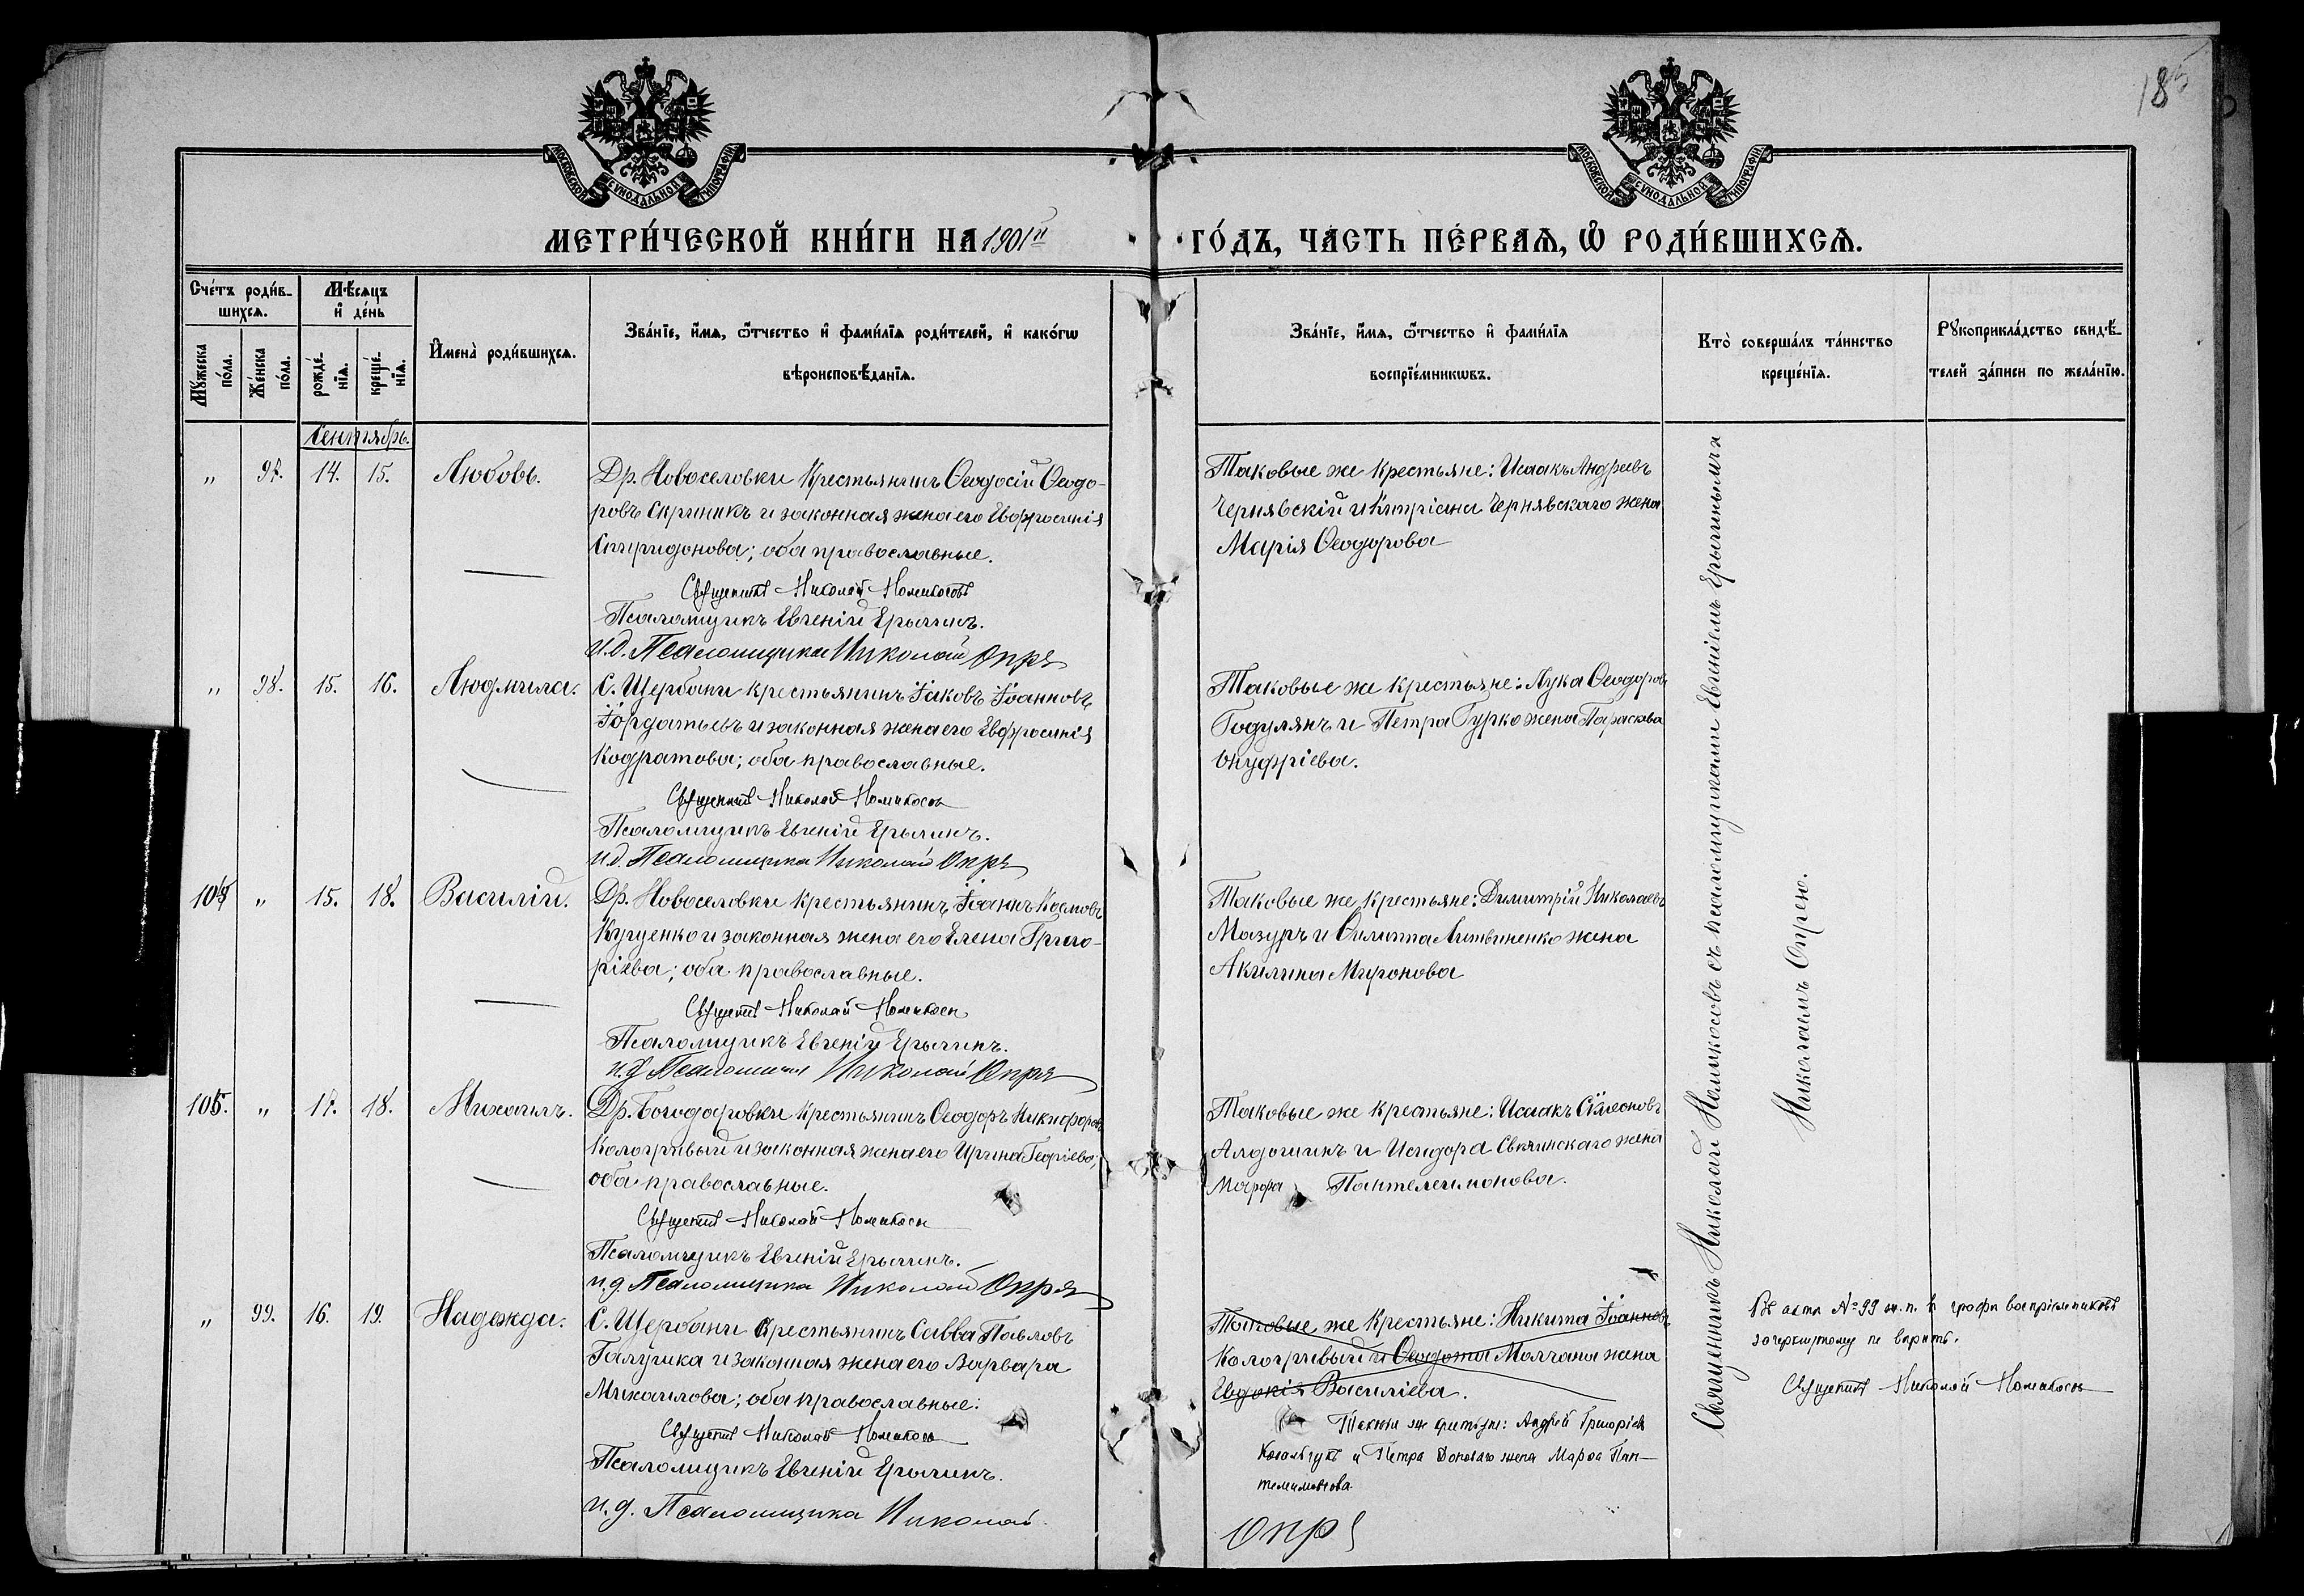 185
МОСКОВСКОЙ СѴНОДАЛЬНОЙ ТИПОГРАФІИ
МОСКОВСКОЙ СѴНОДАЛЬНОЙ ТИПОГРАФІИ
МЕТРИ́ЧЕСКОЙ КНИ́ГИ НА 1901й ГО́ДЪ, ЧА́СТЬ ПЕ́РВАѦ, Ѡ҆ РОДИ́ВШИХСѦ.
Сче́тъ роди́в-
шихсѧ.
Мꙋ́жеска
по́ла.
Же́нска
по́ла.
Мѣ́сѧцъ
и҆ де́нь
рожде́-
нїѧ.
креще́-
нїѧ.
И҆мена̀ роди́вшихсѧ.
Зва́нїе, и҆́мѧ, ѻ҆́тчество и҆ фами́лїѧ роди́телей, и҆ како́гѡ
вѣроисповѣ́данїѧ.
Зва́нїе, и҆́мѧ, ѻ҆́тчество и҆ фами́лїѧ
воспрїе́мникѡвъ.
Кто̀ соверша́лъ та́инство
креще́нїѧ.
Рꙋкоприкла́дство свидѣ́-
телей за́писи по жела́нїю.
Сентябрь.
„ 97. 14. 15. Любовь.
Др. Новоселовки крестьянинъ Ѳеодосій Ѳеодо-
ровъ Скрипникъ и законная жена его Евфросинія
Спиридонова; оба православные.
Священникъ Николай Номикосовъ
Псаломщикъ Евгеній Ерыгинъ.
И.д. Псаломщика Николай Опря
Таковые же крестьяне: Исаакъ Андреевъ
Чернявскій и Кипріана Чернявскаго жена
Марія Ѳеодорова
„ 98. 15. 16. Людмила.
С. Щербани крестьянинъ Іаковъ Іоанновъ
Іордатьевъ и законная жена его Евфросинія
Кодратова; оба православные.
Священникъ Николай Номикосовъ
Псаломщикъ Евгеній Ерыгинъ.
И.д. Псаломщика Николай Опря
Таковые же крестьяне: Лука Ѳеодоровъ
Годулянъ и Петра Гурко жена Параскева
Онуфріева.
104 „ 15. 18. Василій.
Др. Новоселовки крестьянинъ Іоаннъ Космовъ
Куценко и законная жена его Елена Григо-
ріева; оба православные.
Священникъ Николай Номикосовъ
Псаломщикъ Евгеній Ерыгинъ.
и.д. Псаломщика Николай Опря
Таковые же крестьяне: Димитрій Николаевъ
Мазуръ и Филиппа Литвиненко жена
Акилина Миронова
105. „ 17. 18. Михаилъ.
Др. Богодаровки крестьянинъ Ѳеодоръ Никифоровъ
Кологривый и законная жена его Ирина Георгіева;
оба православные.
Священникъ Николай Номикосовъ
Псаломщикъ Евгеній Ерыгинъ.
и.д. Псаломщика Николай Опря
Таковые же крестьяне: Исаакъ Симеоновъ
Алдошинъ и Исидора жена
Марфа Пантелеимонова.
„ 99. 16. 19. Надежда.
С. Щербани крестьянинъ Савва Павловъ
Галушка и законная жена его Варвара
Михаилова; оба православные.
Священникъ Николай Номикосовъ
Псаломщикъ Евгеній Ерыгинъ.
и.д. Псаломщика Николай
Таковые же крестьяне: Никита Іоанновъ
Кологривый и Ѳеодота Молчана жена
Евдокія Василіева.
Таковые же крестьяне: Андрей Григоріевъ
Ковальчукъ и Петра жена Марѳа Пан-
телимонова
Опря
Священникъ Николай Номикосовъ съ псаломщиками Евгеніемъ Ерыгинымъ и
Николаемъ Опрею.
Въ акте № 99 ж.п. въ графе воспріемниковъ
зачеркнутому не верить.
Священникъ Николай Номикосовъ